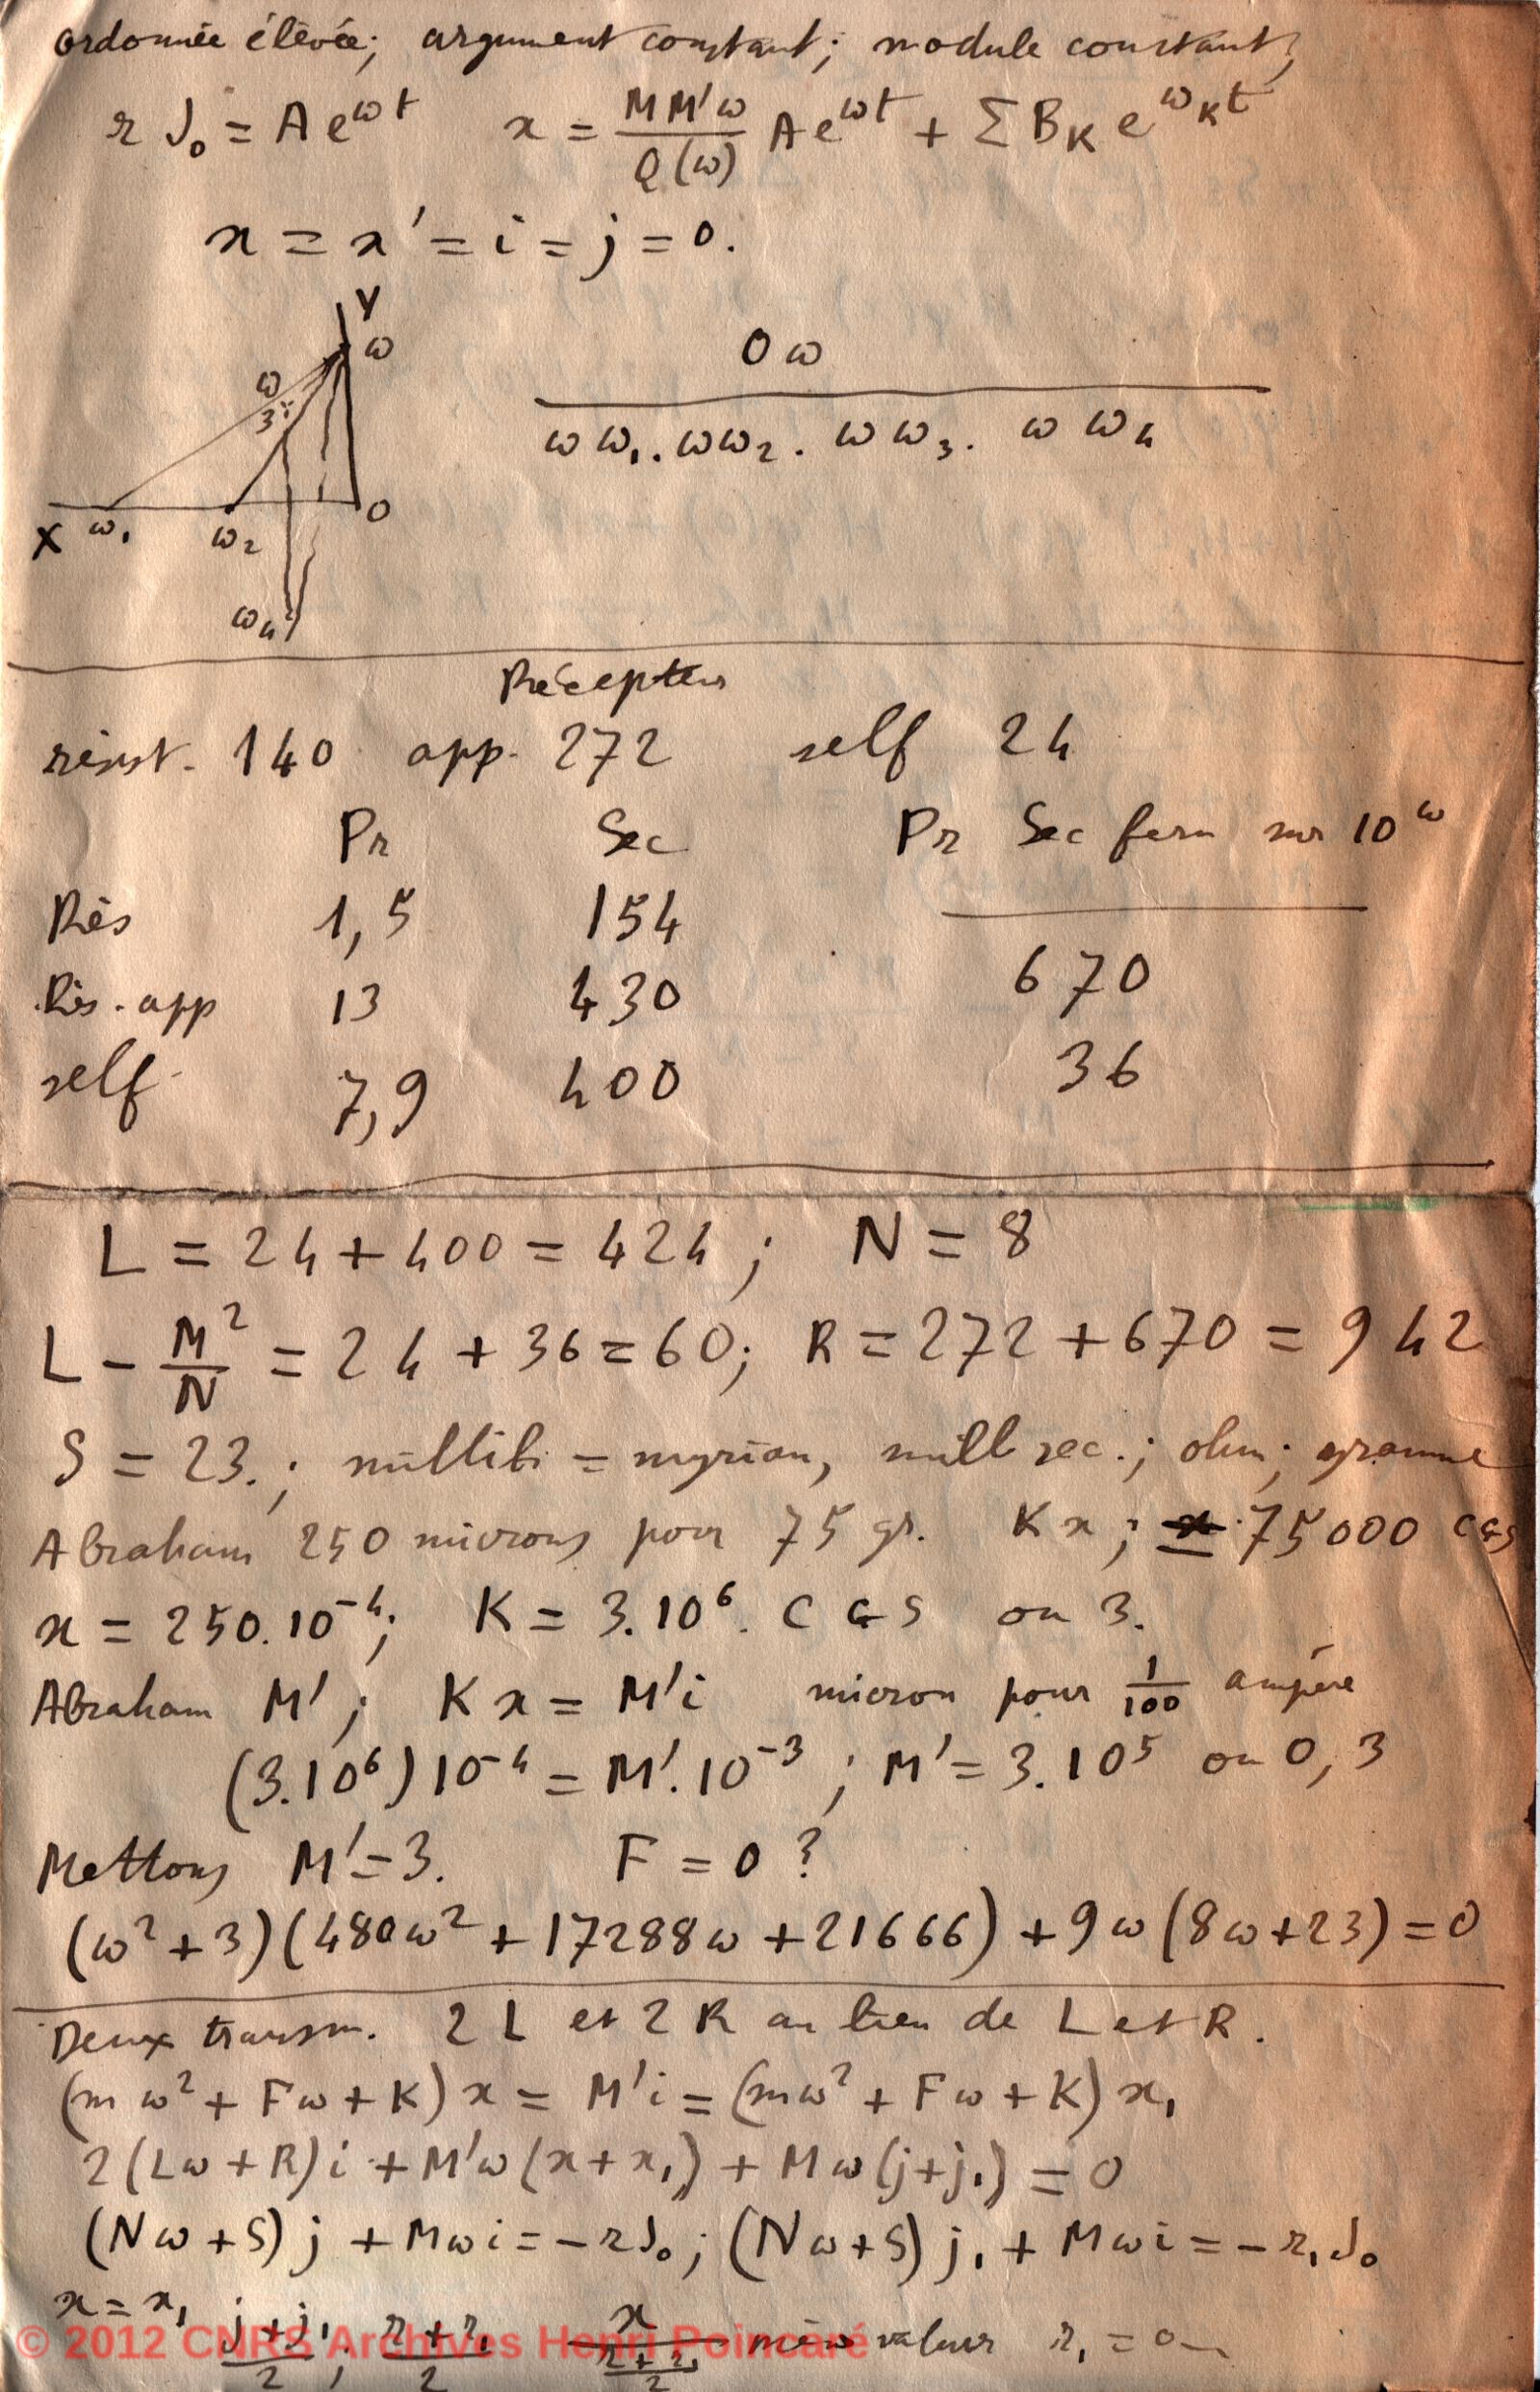 ordonnée élevée; argument constant; module constant;
r J₀ = A e^{ωt} x = \frac{MM'ω}{Q(ω)} A e^{ωt} + Σ B_K e^{ω_K t}
x = x' = i = j = 0.
Y
ω
ω 3
X ω₁ ω₂ O
ω₄
\frac{Oω}{ωω₁. ωω₂. ωω₃. ωω₄}
Récepteur
résist. 140 app. 272 self 24
Pr Sec Pr Sec ferm sur 10^ω
Rés 1,5 154
Rés. app 13 430 670
self 7,9 400 36
L = 24 + 400 = 424; N = 8
L - \frac{M²}{N} = 24 + 36 = 60; R = 272 + 670 = 942
S = 23.; = myriam, mill sec.; ohm; gramme
Abraham 250 microns pour 75 gr. Kx; = 75000 CGS
x = 250.10⁻⁴; K = 3.10⁶. CGS ou 3.
Abraham M'; Kx = M'i micron pour \frac{1}{100} ampère
(3.10⁶)10⁻⁴ = M'.10⁻³; M' = 3.10⁵ ou 0,3
Mettons M' = 3. F = 0 ?
(ω² + 3)(480ω² + 17288ω + 21666) + 9ω(8ω + 23) = 0
Deux transm. 2L et 2R au lieu de L et R.
(mω² + Fω + K)x = M'i = (mω² + Fω + K)x₁
2(Lω + R)i + M'ω(x + x₁) + Mω(j + j₁) = 0
(Nω + S)j + Mωi = -rJ₀; (Nω + S)j₁ + Mωi = -r₁J₀
x = x₁ \frac{j + j₁}{2}; \frac{r + r₁}{2} \frac{x}{\frac{r + r₁}{2}} même valeur r₁ = 0
© 2012 CNRS Archives Henri Poincaré